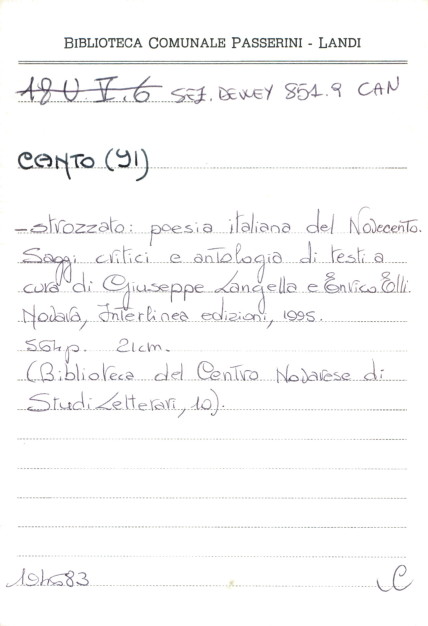 BIBLIOTECA COMUNALE PASSERINI - LANDI
18 U. V. 6 SEZ. DEWEY 851.9 CAN
CANTO (YI)
- strozzato: poesia italiana del Novecento.
Saggi critici e antologia di testi a
cura di Giuseppe Langella e Enrico Elli.
Novara, Interlinea edizioni, 1995.
564 p. 21 cm.
(Biblioteca del Centro Novarese di
Studi Letterari, 10).
C